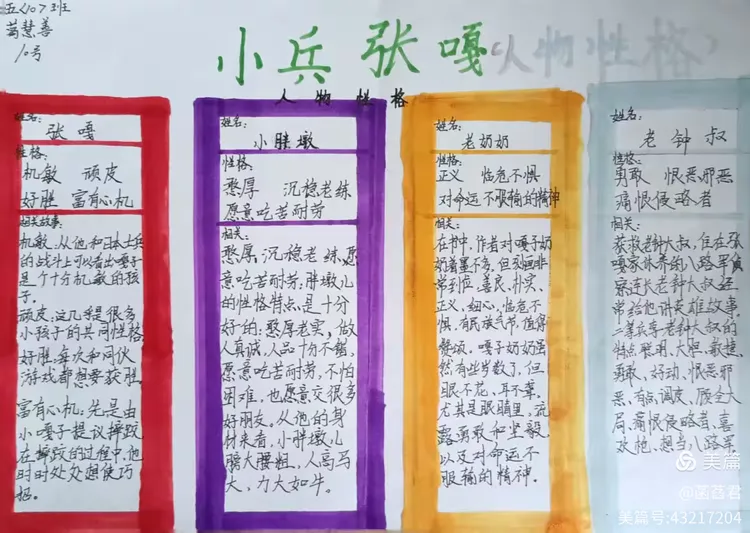 五〈10〉班
慧善
10号
小兵张嘎（人物性格）
人物性格
姓名：
张嘎
性格：
机敏 顽皮
好胜 富有心机
相关故事：
机敏：从他和日本士兵
的战斗上可以看出嘎子
是个十分机敏的孩
子。
顽皮：这几乎是很多
小孩子的共同性格
好胜：每次和同伙
游戏都想要获胜
富有心机：先是由
小嘎子提议摔跤
在摔跤的过程中，他
时时处处想使巧
招。
姓名：
小胖墩
性格：
憨厚 沉稳老练
愿意吃苦耐劳
相关：
憨厚，沉稳老练，愿
意吃苦耐劳：胖墩儿
的性格特点是十分
好的：憨厚老实，做
人真诚，人品十分不错，
愿意吃苦耐劳，不怕
困难，也愿意交很多
好朋友。从他的身
材来看，小胖墩儿
膀大腰粗，人高马
大，力大如牛。
姓名：
老奶奶
性格：
正义 临危不惧
对命运不服输的精神
相关：
在书中，作者对嘎子奶
奶着墨不多，但刻画非
常到位，善良、朴实、
正义、细心，临危不
惧，有民族气节，值得
赞颂。嘎子奶奶虽
然有些岁数了，但
眼不花，耳不聋。
尤其是眼睛里，流
露勇敢和坚毅，
以及对命运不
服输的精神。
姓名：
老钟叔
性格：
勇敢 恨恶邪恶
痛恨侵略者
相关：
获救老钟大叔，住在张
嘎家休养的八路军侦
察连长老钟大叔经
常给他讲英雄故事。
老钟大叔的
特点聪明、大胆、敏捷、
勇敢、好动、恨恶邪
恶、有点调皮、顾全大
局、痛恨侵略者、喜
欢枪、想当八路军。
美篇
@菡萏君
美篇号:43217204